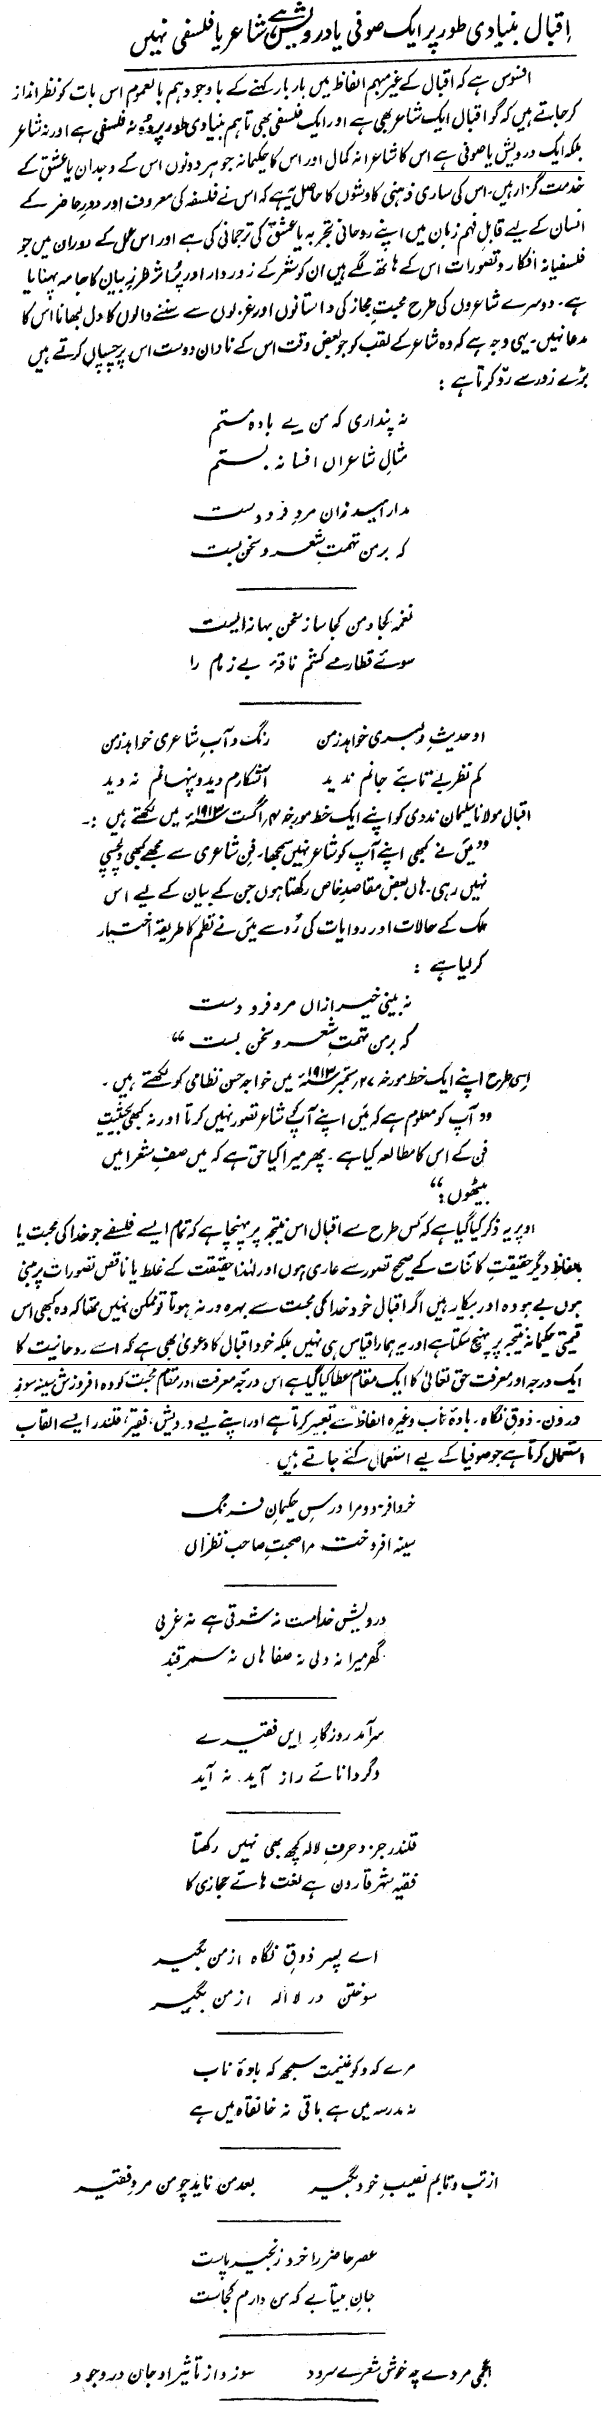 اقبال بنیادی طور پر ایک صوفی یا درویش ہے شاعر یا فلسفی نہیں
افسوس ہے کہ اقبال کے غیر مبہم الفاظ میں بار بار کہنے کے باوجود ہم بالعموم اس بات کو نظر انداز
کر جاتے ہیں کہ گو اقبال ایک شاعر بھی ہے اور ایک فلسفی بھی تاہم بنیادی طور پر وہ نہ فلسفی ہے اور نہ شاعر
بلکہ ایک درویش یا صوفی ہے اس کا شاعرانہ کمال اور اس کا حکیمانہ جوہر دونوں اس کے وجدان یا عشق کے
خدمت گزار ہیں۔ اس کی ساری ذہنی کاوشوں کا حاصل یہ ہے کہ اس نے فلسفہ کی معروف اور دورِ حاضر کے
انسان کے لیے قابلِ فہم زبان میں اپنے روحانی تجربہ یا عشق کی ترجمانی کی ہے اور اس عمل کے دوران میں جو
فلسفیانہ افکار و تصورات اس کے ہاتھ لگے ہیں ان کو شعر کے زوردار اور پُر اثر طرزِ بیان کا جامہ پہنایا
ہے۔ دوسرے شاعروں کی طرح محبتِ مجاز کی داستانوں اور غزلوں سے سننے والوں کا دل لبھانا اس کا
مدعا نہیں۔ یہی وجہ ہے کہ وہ شاعر کے لقب کو جو بعض وقت اس کے نادان دوست اس پر چسپاں کرتے ہیں
بڑے زور سے رد کرتا ہے :
نہ پنداری کہ من بے بادہ مستم
مثالِ شاعراں افسانہ بستم
مدار امید زان مردِ فرو دست
کہ بر من تہمتِ شعر و سخن بست
نغمہ کجا و من کجا سازِ سخن بہانہ ایست
سوئے قطار مے کشم ناقۂ بے زمام را
او حدیثِ دلبری خواہد ز من رنگ و آبِ شاعری خواہد ز من
کم نظر بے تابئے جانم ندید آشکارم دید و پنہانم نہ دید
اقبال مولانا سلیمان ندوی کو اپنے ایک خط مورخہ ۴؍ اگست ۱۹۱۳ء میں لکھتے ہیں :۔
”میں نے کبھی اپنے آپ کو شاعر نہیں سمجھا۔ فنِ شاعری سے مجھے کبھی دلچسپی
نہیں رہی۔ ہاں بعض مقاصدِ خاص رکھتا ہوں جن کے بیان کے لیے اس
ملک کے حالات اور روایات کی رُو سے میں نے نظم کا طریقہ اختیار
کر لیا ہے :
نہ بینی خیر ازاں مردِ فرو دست
کہ بر من تہمتِ شعر و سخن بست “
اسی طرح اپنے ایک خط مورخہ ۲۷؍ ستمبر ۱۹۱۳ء میں خواجہ حسن نظامی کو لکھتے ہیں ۔
”آپ کو معلوم ہے کہ میں اپنے آپ کو شاعر تصور نہیں کرتا اور نہ کبھی بحیثیت
فن کے اس کا مطالعہ کیا ہے۔ پھر میرا کیا حق ہے کہ میں صفِ شعرا میں
بیٹھوں؛“
اوپر یہ ذکر کیا گیا ہے کہ کس طرح سے اقبال اس نتیجہ پر پہنچا ہے کہ تمام ایسے فلسفے جو خدا کی محبت یا
بالفاظِ دیگر حقیقتِ کائنات کے صحیح تصور سے عاری ہوں اور لہٰذا حقیقت کے غلط یا ناقص تصورات پر مبنی
ہوں بے ہودہ اور بیکار ہیں اگر اقبال خود خدا کی محبت سے بہرہ ور نہ ہوتا تو ممکن نہیں تھا کہ وہ کبھی اس
قیمتی حکیمانہ نتیجہ پر پہنچ سکتا ہے اور یہ ہمارا قیاس ہی نہیں بلکہ خود اقبال کا دعویٰ بھی ہے کہ اسے روحانیت کا
ایک درجہ اور معرفتِ حق تعالیٰ کا ایک مقام عطا کیا گیا ہے اس درجہ معرفت اور مقامِ محبت کو وہ افروزشِ سینہ سوز
درون۔ ذوقِ نگاہ۔ بادۂ ناب وغیرہ الفاظ سے تعبیر کرتا ہے اور اپنے لیے درویش، فقیر، قلندر ایسے القاب
استعمال کرتا ہے جو صوفیا کے لیے استعمال کئے جاتے ہیں ۔
خرد افزود مرا درسِ حکیمانِ فرنگ
سینہ افروخت مرا صحبتِ صاحب نظراں
درویشِ خدا مست نہ شرقی ہے نہ غربی
گھر میرا نہ دلی نہ صفاہاں نہ سمرقند
سر آمد روزگارِ ایں فقیرے
دگر دانائے راز آید نہ آید
قلندر جز دو حرفِ لا الہ کچھ بھی نہیں رکھتا
فقیہِ شہر قارون ہے لغت ہائے حجازی کا
اے پسر ذوقِ نگاہ از من بگیر
سوختن در لا الہ از من بگیر
مرے کدو کو غنیمت سمجھ کہ بادۂ ناب
نہ مدرسہ میں ہے باقی نہ خانقاہ میں ہے
از تب و تابم نصیبِ خود بگیر بعد من ناید چو من مردِ فقیر
عصرِ حاضر را خرد زنجیرِ پاست
جانِ بیتابے کہ من دارم کجاست
اعجمی مردے چہ خوش شعرے سرود سوزد از تاثیر او جان در وجود